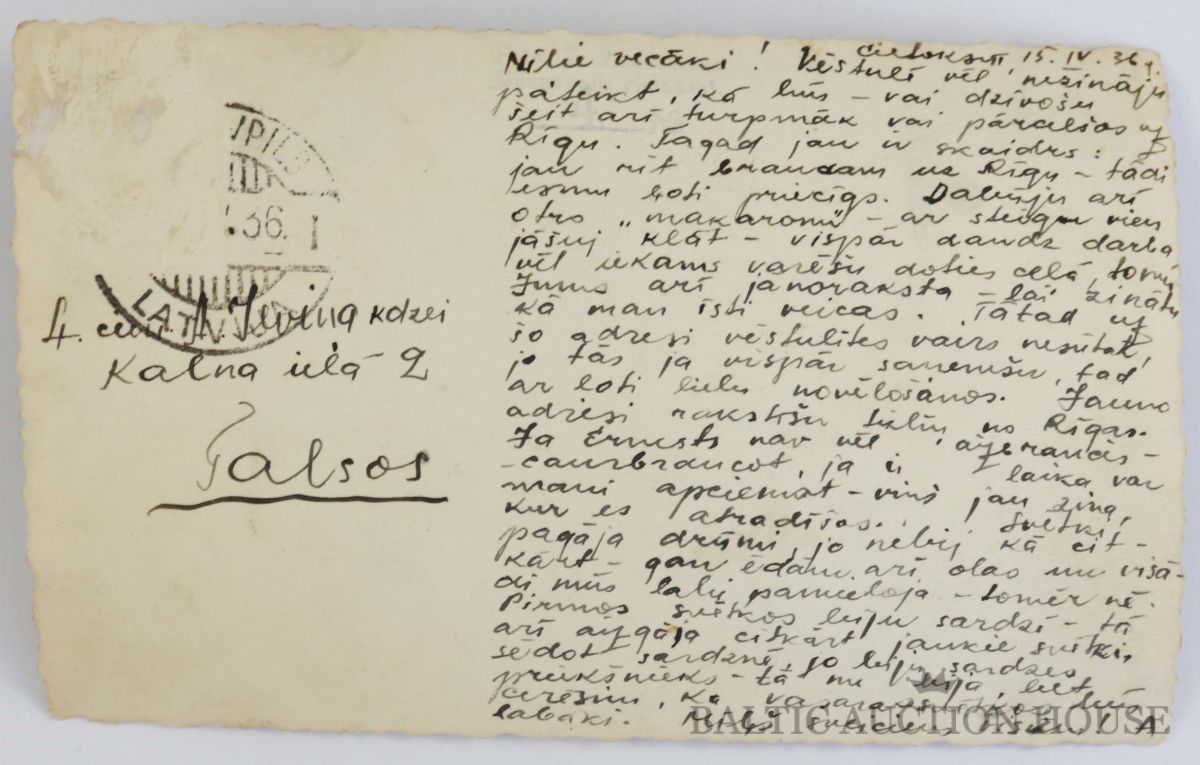 Cietoksnī, 15. IV. 36 g.
Mīlie vecāki! Vēstulē vēl nezināju
pateikt, kā būs – vai dzīvošu
šeit arī turpmāk vai pārcelšos uz
Rīgu. Tagad jau ir skaidrs:
jau rīt braucam uz Rīgu – tādēļ
esmu ļoti priecīgs. Dabūju arī
otro „makaronu" – ar steigu vien
jāšuj klāt – vispār daudz darba
vēl iekams varēšu doties ceļā, tomēr
Jums arī jānoraksta – lai zinātu
kā man īsti veicas. Tātad uz
šo adresi vēstulītes vairs nesūtat,
jo tās ja vispār saņemšu, tad
ar ļoti lielu novēlošanos. Jauno
adresi rakstīšu tūliņ no Rīgas.
Ja Ernests nav vēl aizbraucis –
– caurbraucot, ja ir laika var
mani apciemot – viņš jau zina,
kur es atradīšos. Svētki
pagāja drūmi, jo nebij kā cit-
kārt – gan ēdām arī olas un visā-
di mūs labi pamieloja – tomēr nē.
Pirmos svētkos biju sardzē – tā
arī aizgāja citkārt jaukie svētki,
sēdot sardzē, jo biju sardzes
priekšnieks – tā nu bija, bet
cerēsim, ka vasarassvētkos būs
labāki. Mīļi sveicieni Visiem! A
IPILS
.36. I
LATVIJA
A. Ieviņa kdzei
Kalna ielā 2
Talsos
BALTIC AUCTION HOUSE